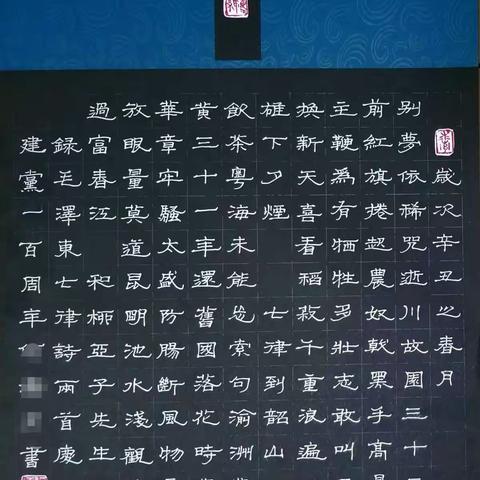 歲次辛丑之春月
别夢依稀咒逝川故園三十
前紅旗捲起農奴戟黑手高
主鞭為有牺牲多壯志敢叫
換新天喜看稻菽千重浪遍
雄下夕煙 七律到韶山
飲茶粵海未能忘索句渝洲
黄三十一年還舊國落花時
華章牢騷太盛防腸斷風物
放眼量莫道昆明池水淺觀
過富春江 和柳亞子先生
錄毛澤東七律詩兩首慶
建黨一百周年 書